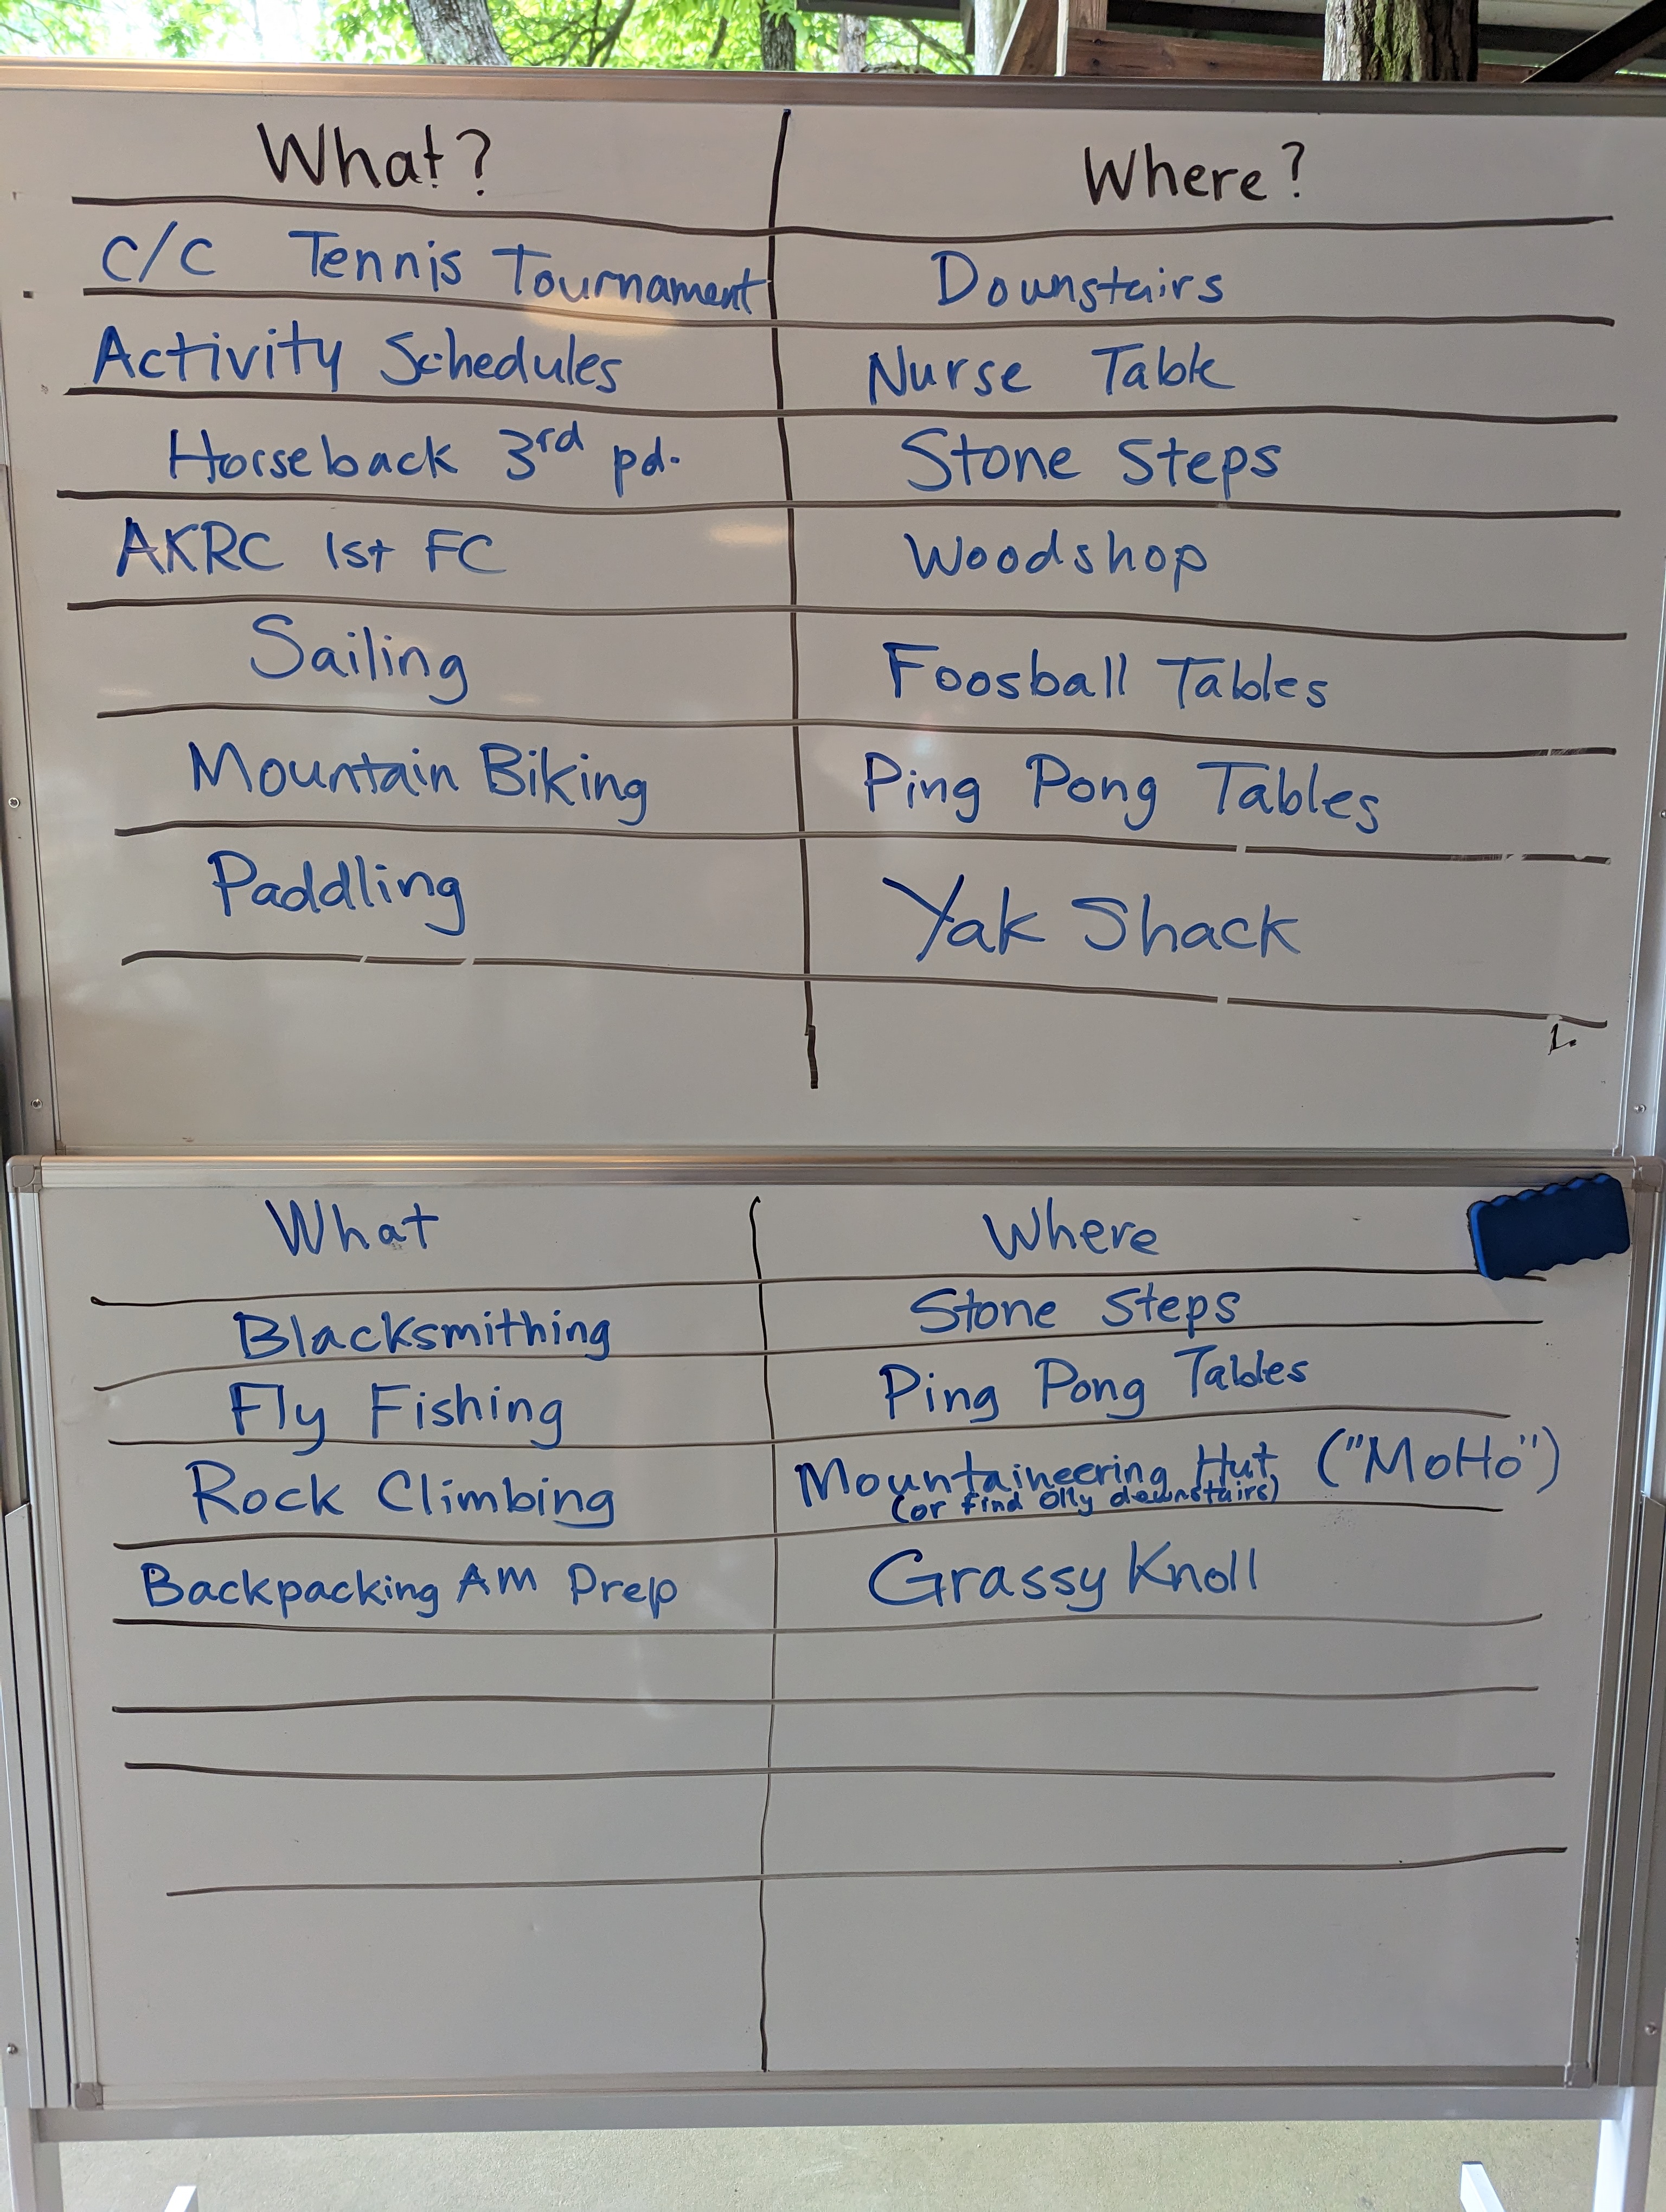 What? Where?
C/C Tennis Tournament Downstairs
Activity Schedules Nurse Table
Horseback 3rd pd. Stone Steps
AKRC 1st FC Woodshop
Sailing Foosball Tables
Mountain Biking Ping Pong Tables
Paddling Yak Shack
What Where
Blacksmithing Stone Steps
Fly Fishing Ping Pong Tables
Rock Climbing Mountaineering Hut, ("MoHo")
(or find Olly downstairs)
Backpacking AM Prep Grassy Knoll